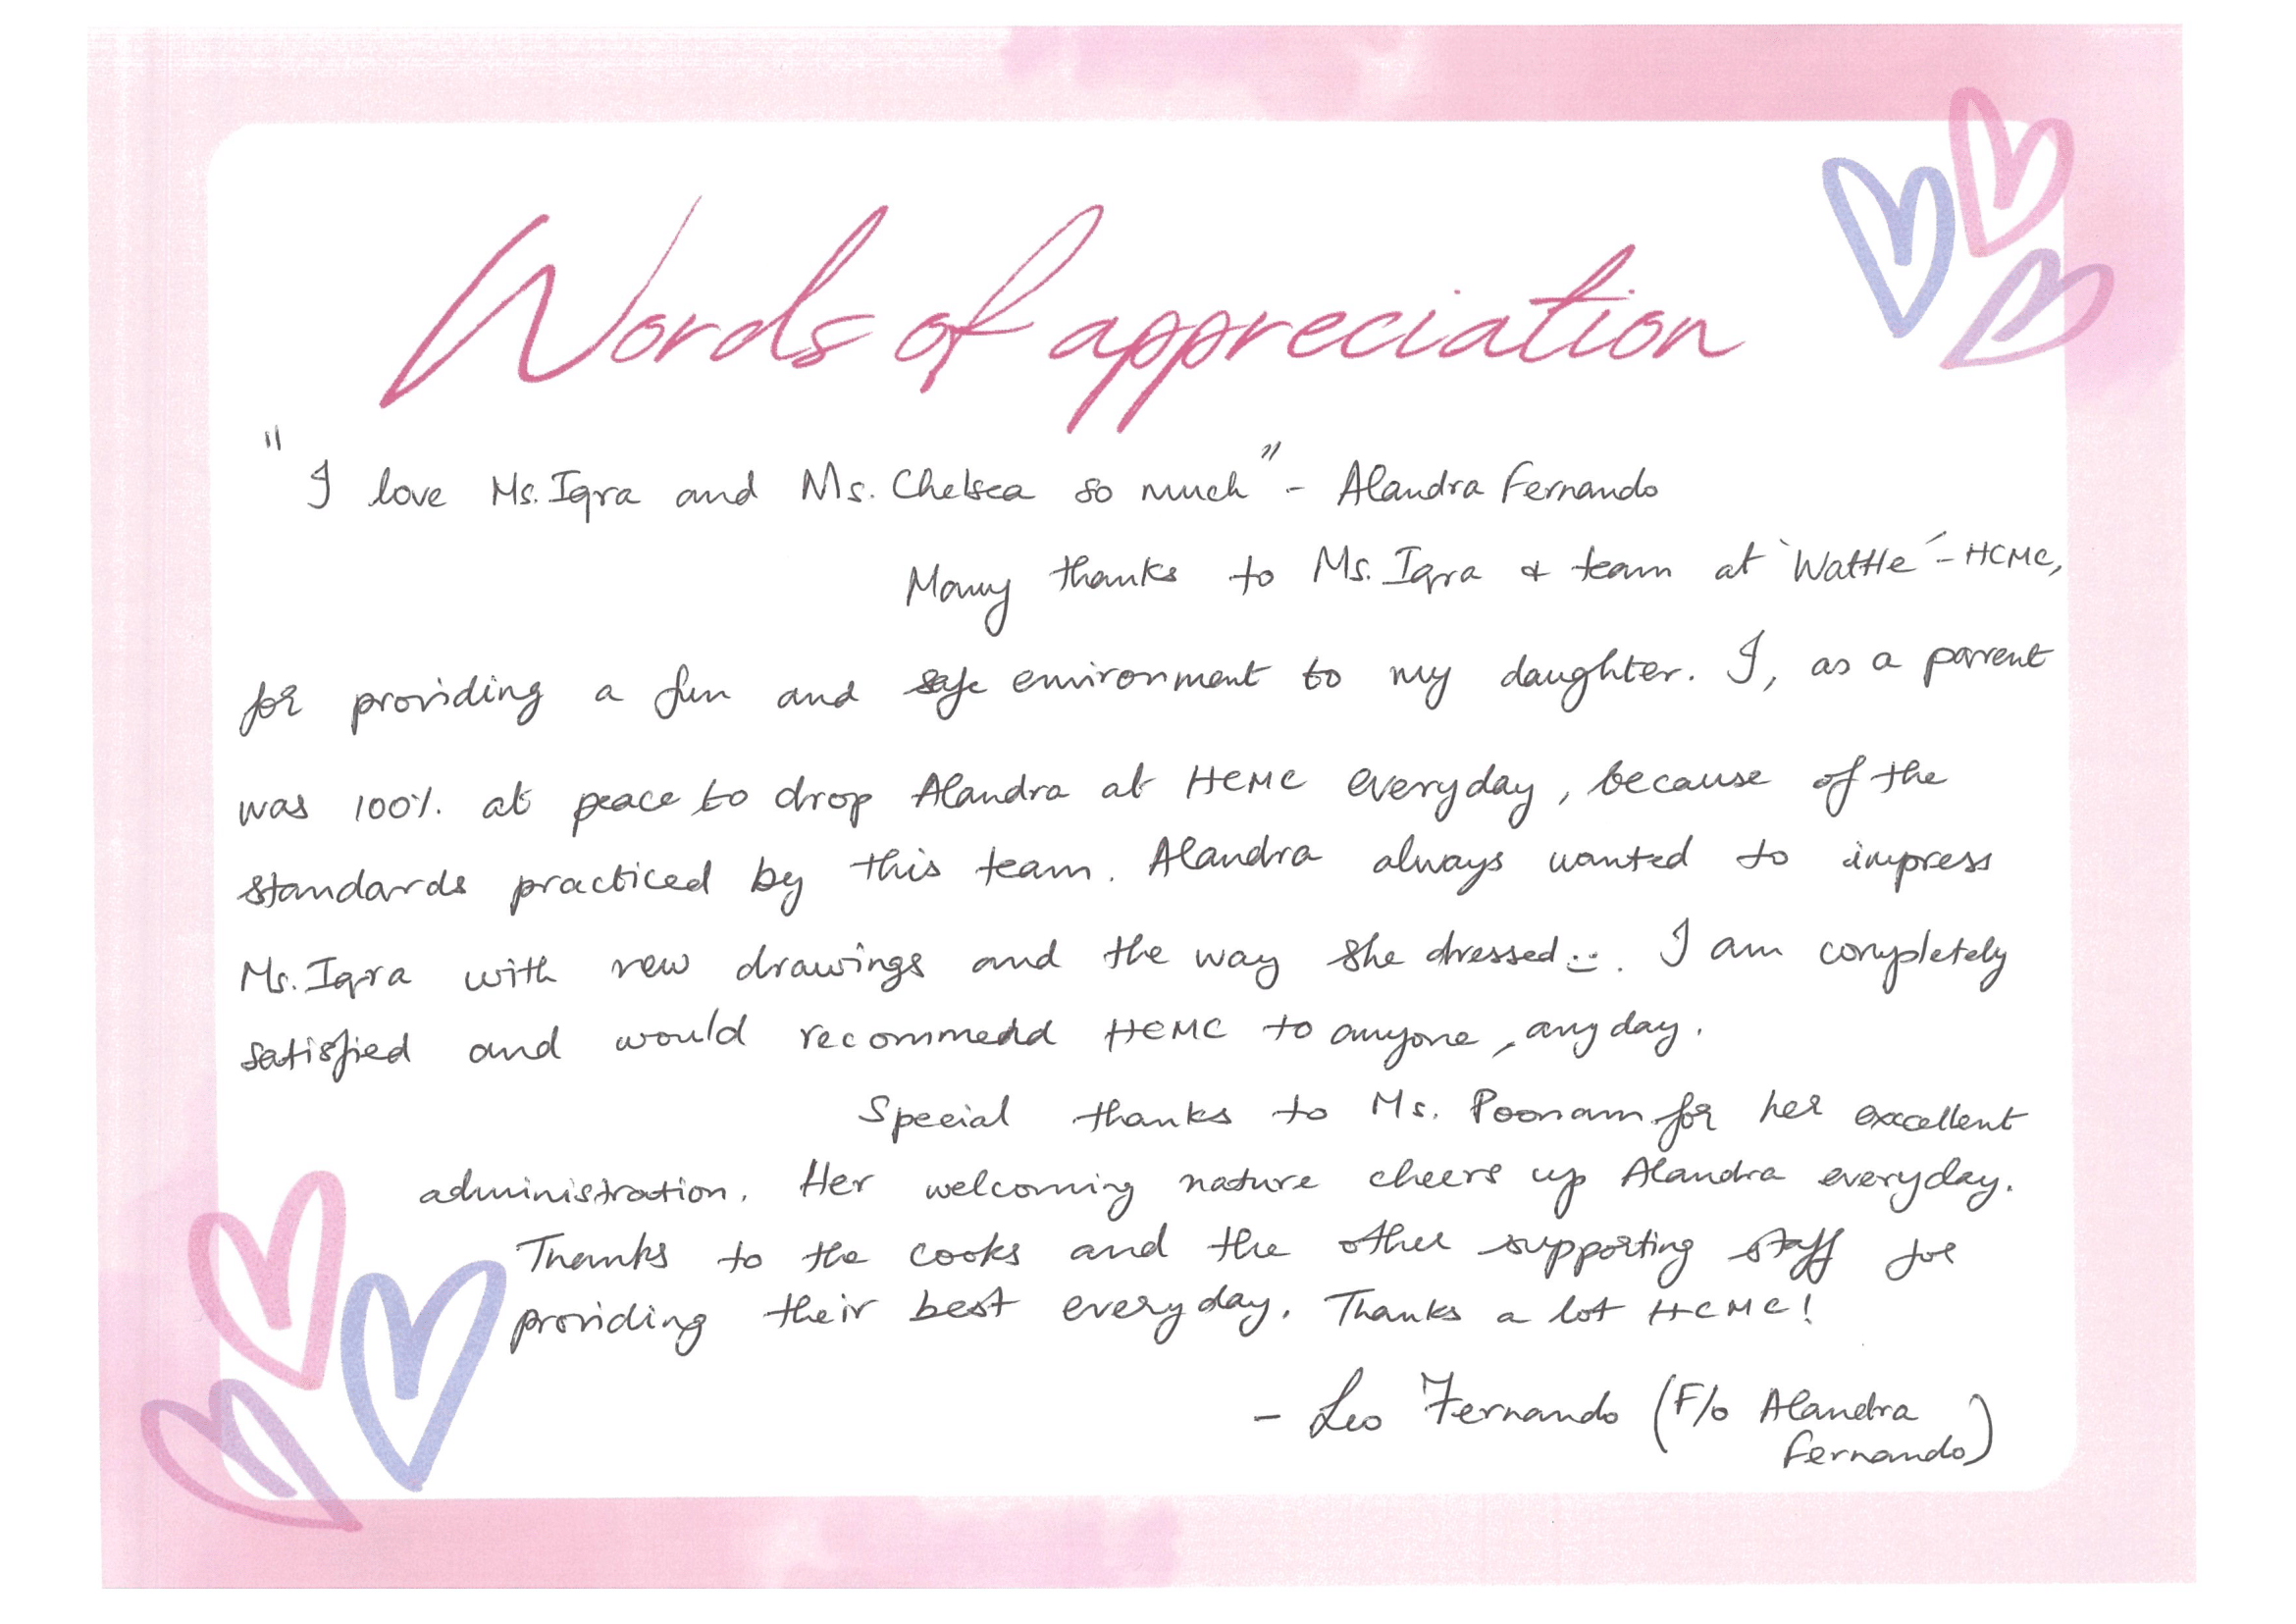 Words of appreciation
"I love Ms. Iqra and Ms. Chelsea so much" - Alandra Fernando
Many thanks to Ms. Iqra & team at 'Wattle' - HCMC,
for providing a fun and safe environment to my daughter. I, as a parent
was 100% at peace to drop Alandra at HCMC everyday, because of the
standards practiced by this team. Alandra always wanted to impress
Ms. Iqra with new drawings and the way she dressed :). I am completely
satisfied and would recommend HCMC to anyone, any day.
Special thanks to Ms. Poonam for her excellent
administration. Her welcoming nature cheers up Alandra everyday.
Thanks to the cooks and the other supporting staff for
providing their best everyday. Thanks a lot HCMC!
- Leo Fernando (F/o Alandra
Fernando)